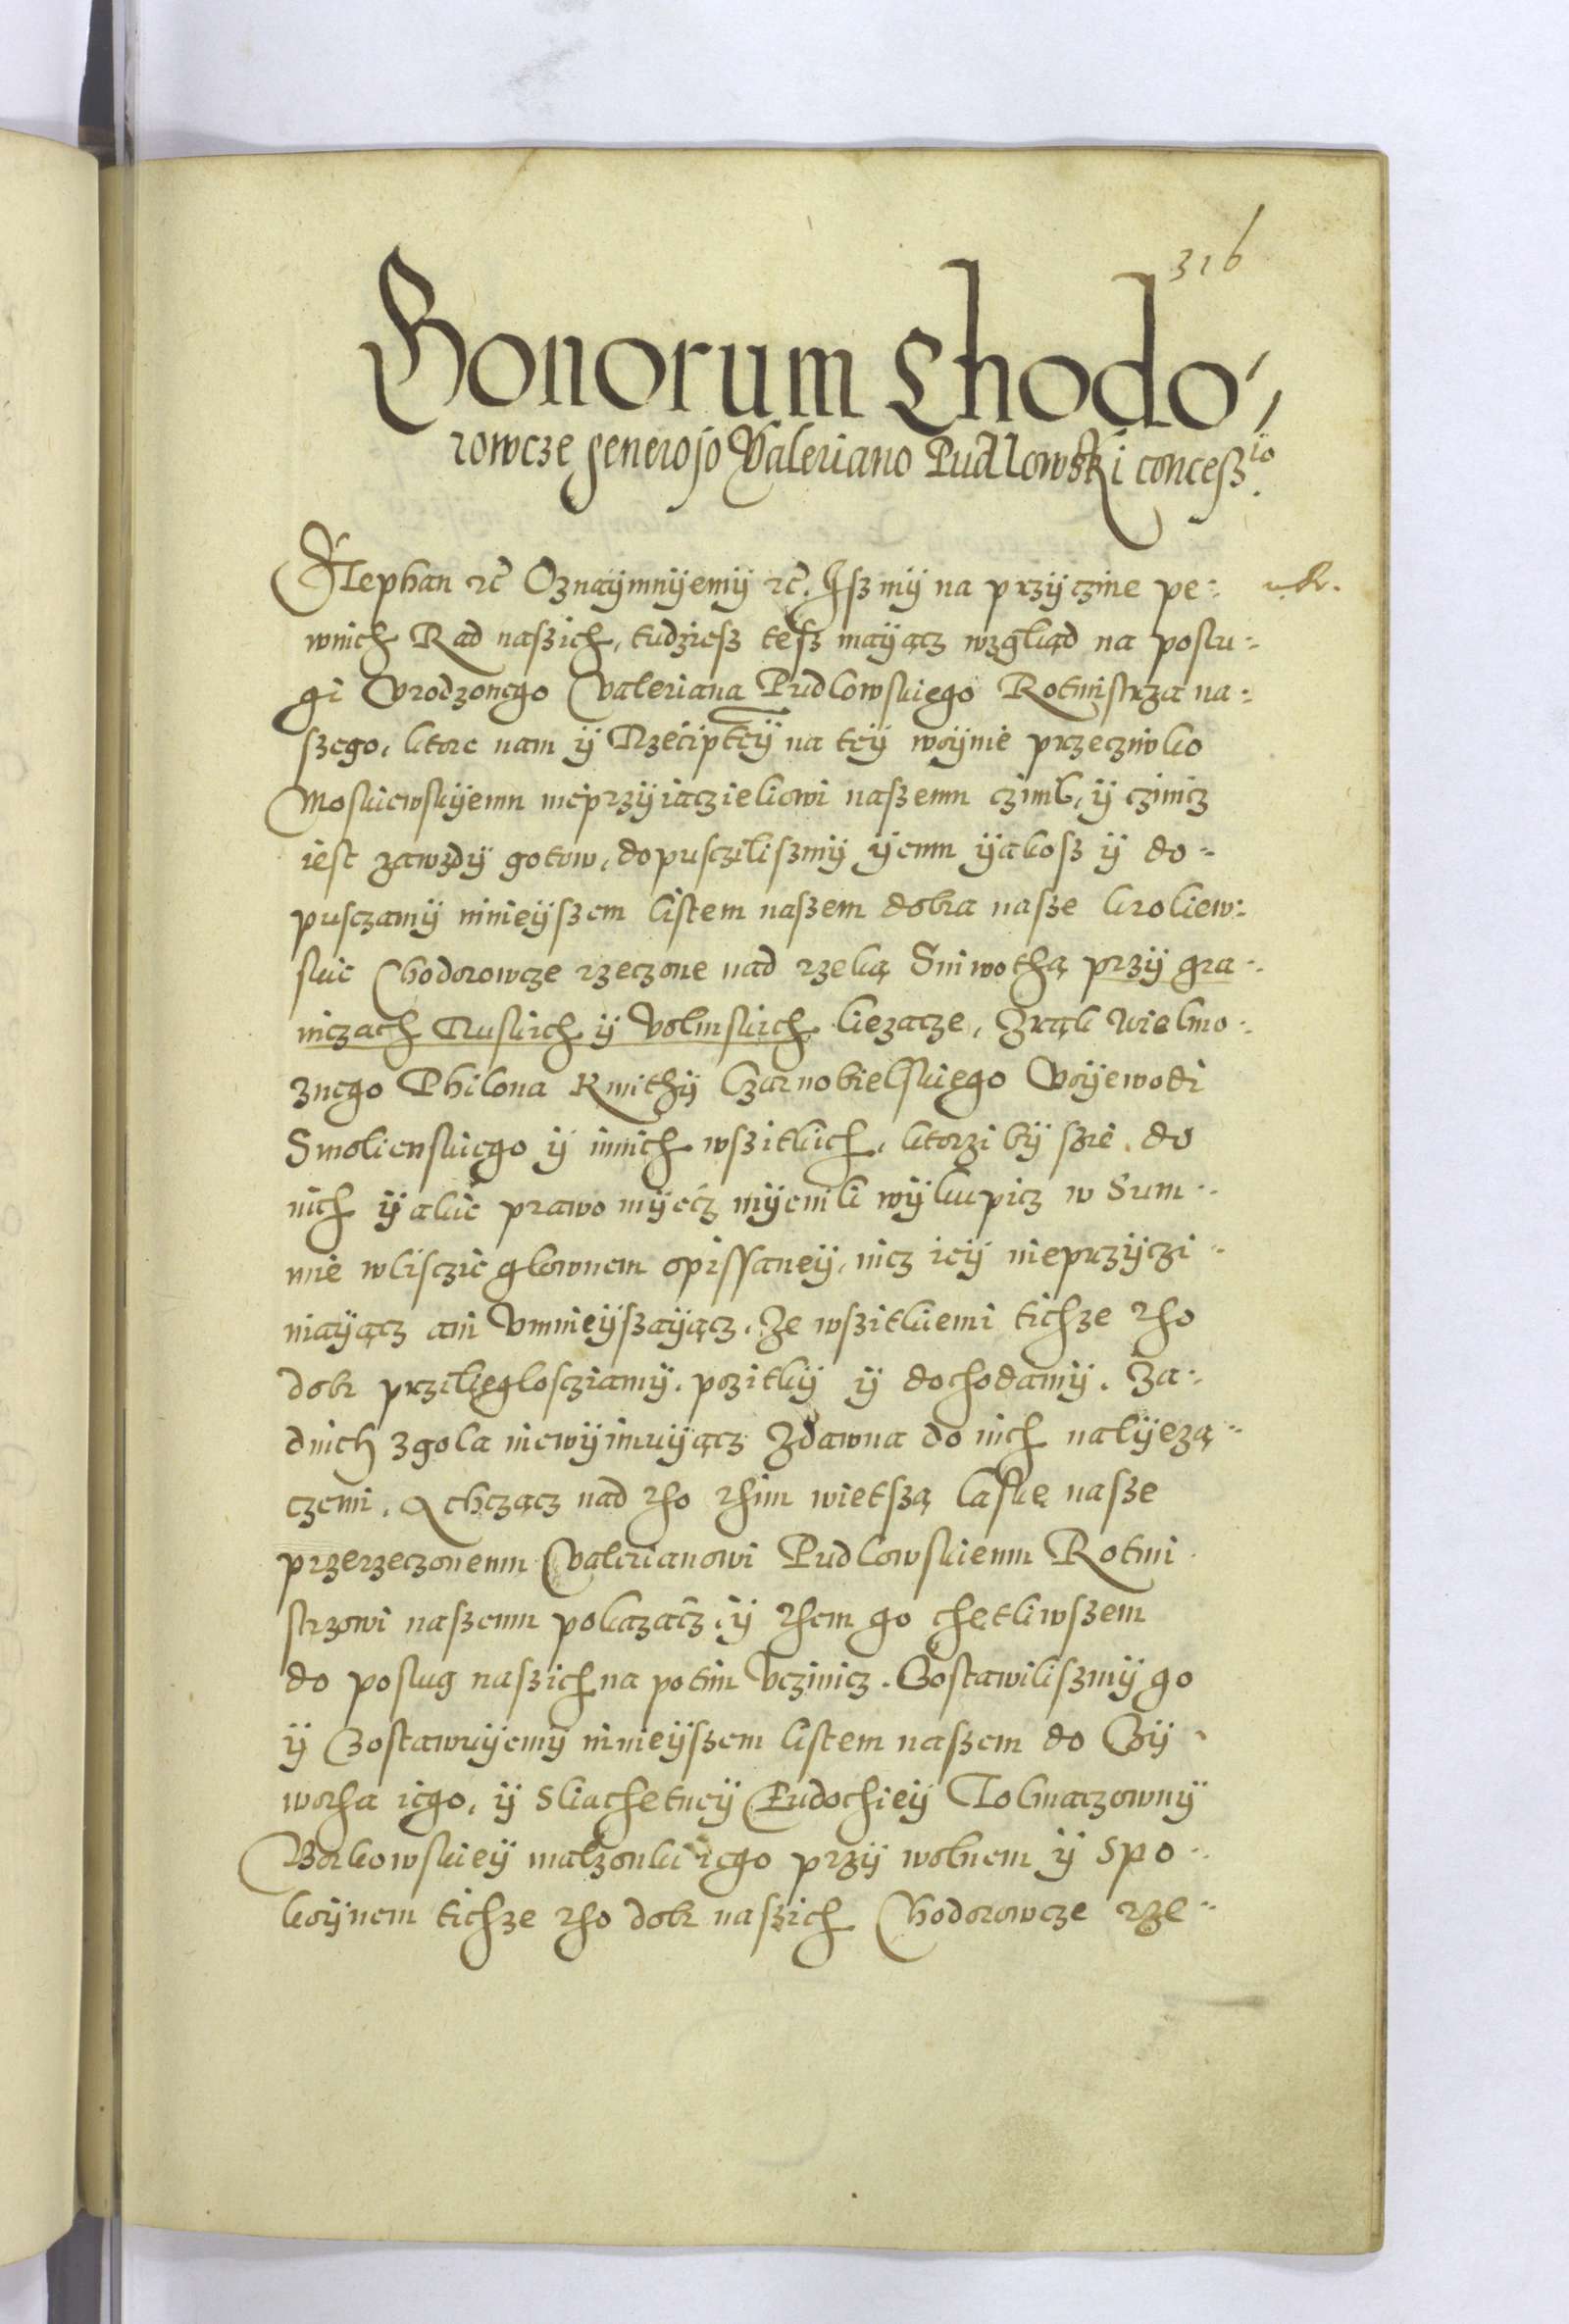 316
Bonorum Chodo-
rowcze generoso Valeriano Pudlowski concessio.
Stephan etc Oznaÿmnÿemÿ etc. Isz mÿ na przÿczine pe-
wnich Rad naszich, tudziesz tesz maÿącz wzgląd na poslu-
gi Vrodzonego Valeriana Pudlowskiego Rotmistrza na-
szego, ktore nam ÿ Rzeciplteÿ na teÿ woÿnie przecziwko
Moskiewskÿemu nieprzÿiaczieliowi naszemu czinil, ÿ czinicz
iest zawzdÿ gotow, dopusczilismÿ ÿemu ÿakosz ÿ do-
pusczamÿ ninieÿszem listem naszem dobra nasze kroliew-
skie Chodorowcze rzeczone nad rzeką Sniwothą przÿ gra-
niczach Ruskich ÿ Volinskich liezacze, Z rąk Wielmo-
znego Philona Kmithÿ Czarnobielskiego Voÿewodi
Smolienskiego ÿ innich wszitkich, ktorzi bÿ szie do
nich ÿakie prawo mÿecz mÿenili wÿkupicz w Sum-
mie w lisczie glownem opissaneÿ, nicz ieÿ nieprzÿczi-
niaÿącz ani Vmnieÿszaÿącz. Ze wszitkiemi tichze tho
dobr przilieglosciamÿ, pozitkÿ ÿ dochodamÿ. Za-
dnich zgola niewÿimuÿącz Zdawna do nich nalÿezą-
czemi. A chczącz nad tho thim wietszą laskę nasze
przerzeczonemu Valerianowi Pudlowskiemu Rotmi
strzowi naszemu pokazacz, ÿ them go chętliwszem
do poslug naszich na potim Vczinicz. Zostawilismÿ go
ÿ Zostawuÿemÿ ninieÿszem listem naszem do Zÿ-
wotha iego, ÿ Sliachetneÿ Eudochieÿ Tolmaczownÿ
Borkowskieÿ malzonki iego przÿ wolnem ÿ spo-
koÿnem tichze tho dobr naszich Chodorowcze rze-